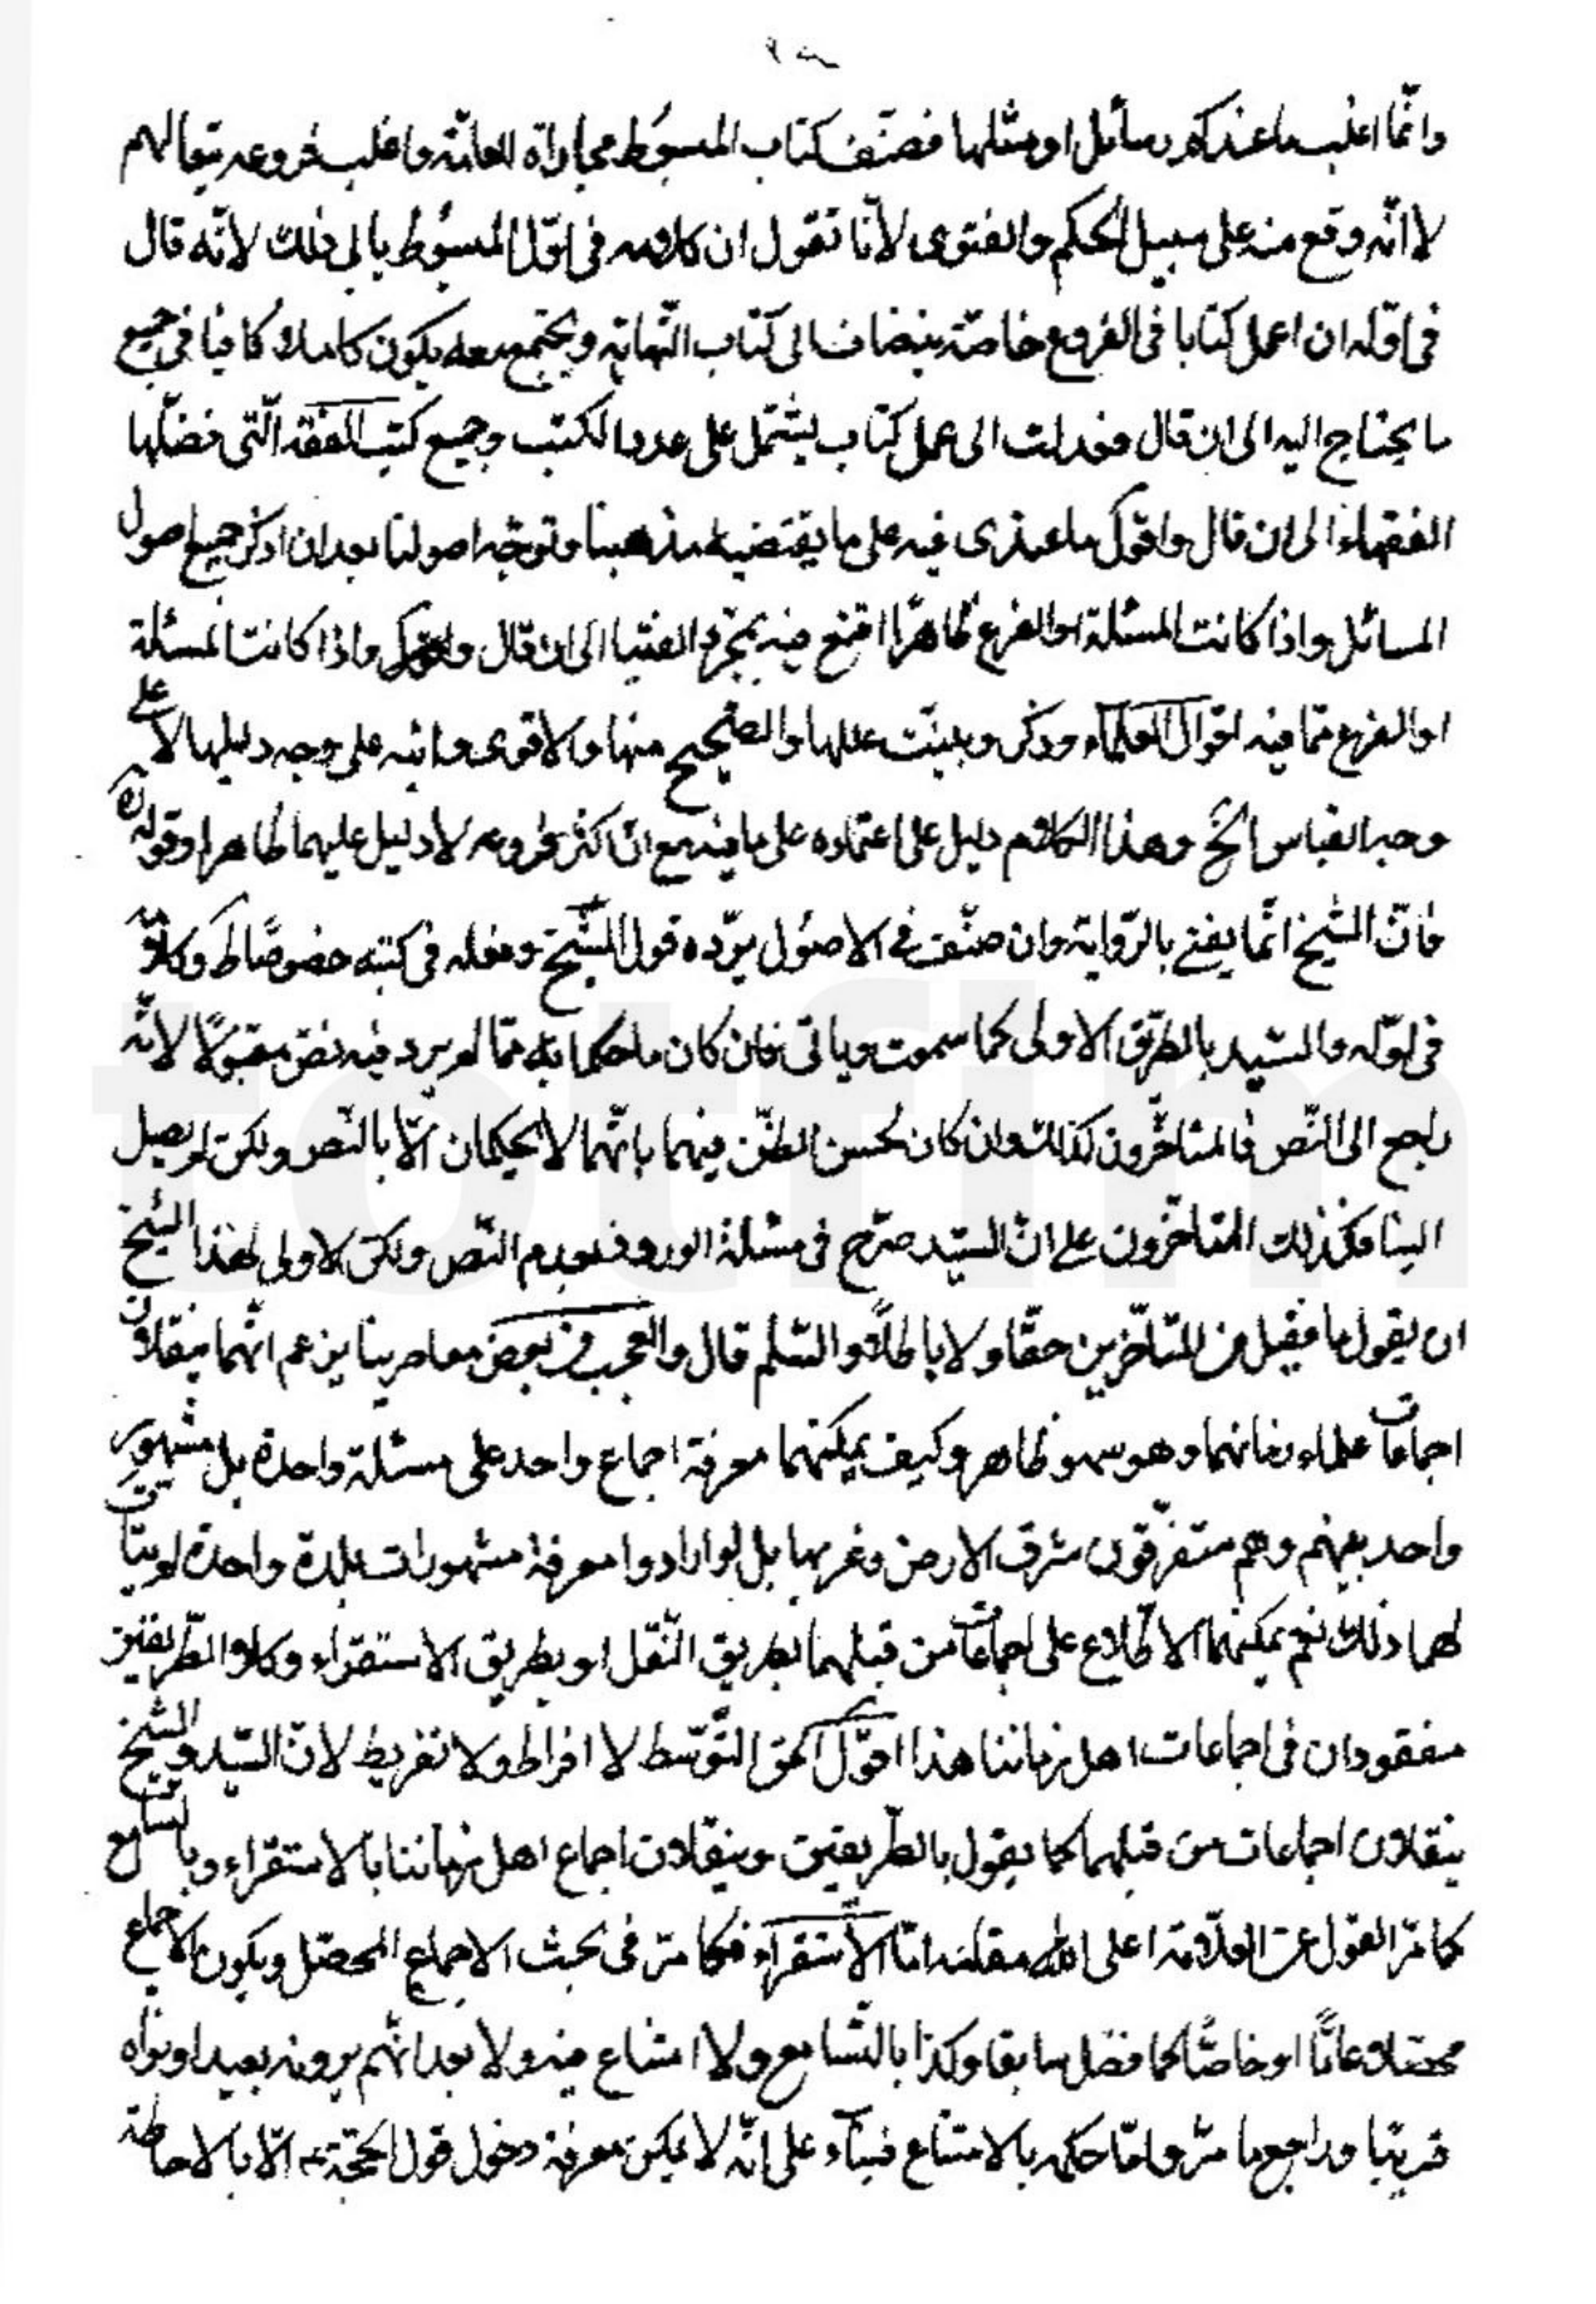 وانّما اغلب ما عندكم رسائل او مثلها فصنّف كتاب المبسوط مجاراة للعامّة واغلب فروعه تبعا لهم
لا انّه وقع منه على سبيل الحكم والفتوى لانّا نقول ان كلامه فى اوّل المبسوط يابى ذلك لانّه قال
فى اوّله ان اعمل كتابا فى الفروع خاصّة ينضاف الى كتاب النّهاية ويجتمع معه يكون كاملا كافيا فى جميع
ما يحتاج اليه الى ان قال فعدلت الى عمل كتاب يشتمل على عدد الكتب وجميع كتب الفقه الّتى فصّلها
الفقهاء الى ان قال واقول ما عندى فيه على ما يقتضيه مذهبنا وتوجّبه اصولنا بعد ان اذكر جميع اصول
المسائل واذا كانت المسئلة او الفرع ظاهرًا اقنع فيه بمجرّد الفتيا الى ان قال واذا كانت المسئلة
او الفرع ممّا فيه اقوال العلماء وذكر وبيّنت عللها والصّحيح منها والاقوى وانبّه على وجه دليلها لا على
وجه القياس الخ وهذا الكلام دليل على اعتماده على ما فيه مع انّ اكثر فروعه لا دليل عليهما ظاهرا وقوله ره
فانّ الشّيخ انّما يفتى بالرّواية وان صنّف فى الاصول يردّه قول الشّيخ وفعله فى كتبه خصوصًا ط وكلامه
فى اوّله والسّيد بالطّريق الاولى كما سمعت وياتى فان كان ما حكما به ممّا لم يرد فيه نصّ مقبولًا لانّه
راجع الى النّص فالمتاخّرون كذلك وان كان لحسن الظّن فيهما بانّهما لا يحكمان الّا بالنّص ولكن لم يصل
الينا فكذلك المتاخّرون على انّ السيّد صرّح فى مسئلة بعدم النّص ولكن الاولى لهذا الشّيخ
ان يقول ما نقبل من المتاخّرين حقّا ولا باطلًا والسّلم قال والعجب من بعض معاصرينا يزعم انّهما ينقلان
اجماعات علماء زمانهما وهو سهو ظاهر وكيف يمكنهما معرفة اجماع واحد على مسئلة واحدة بل مشهور
واحد بينهم وهم متفرّقون شرق الارض وغربها بل لو ارادوا معرفة مشهورات بلدة واحدة لم يتات
لهما ذلك نعم يمكنهما الاطّلاع على اجماعات من قبلهما بطريق النّقل او بطريق الاستقراء وكلا الطّريقين
مفقودان فى اجماعات اهل زماننا هذا اقول الحق التّوسّط لا افراط ولا تفريط لانّ السّيّد والشّيخ
ينقلان اجماعات من قبلهما كما يقول بالطّريقين وينقلان اجماع اهل زماننا بالاستقراء وبالتسامع
كما مرّ القول عن العلّامة اعلى الله مقامه امّا الاستقراء فكما مرّ فى بحث الاجماع المحصّل ويكون الاجماع
محصّلا عامًّا او خاصًّا كما فصّل سابقا وكذا بالتّسامع ولا امتناع فيه ولا بعد انّهم يرونه بعيدا ونراه
قريبا وراجع ما مرّ وامّا حكمه بالامتناع فبناء على انّه لا يمكن معرفة دخول قول الحجّة ع الّا بالاحاطة